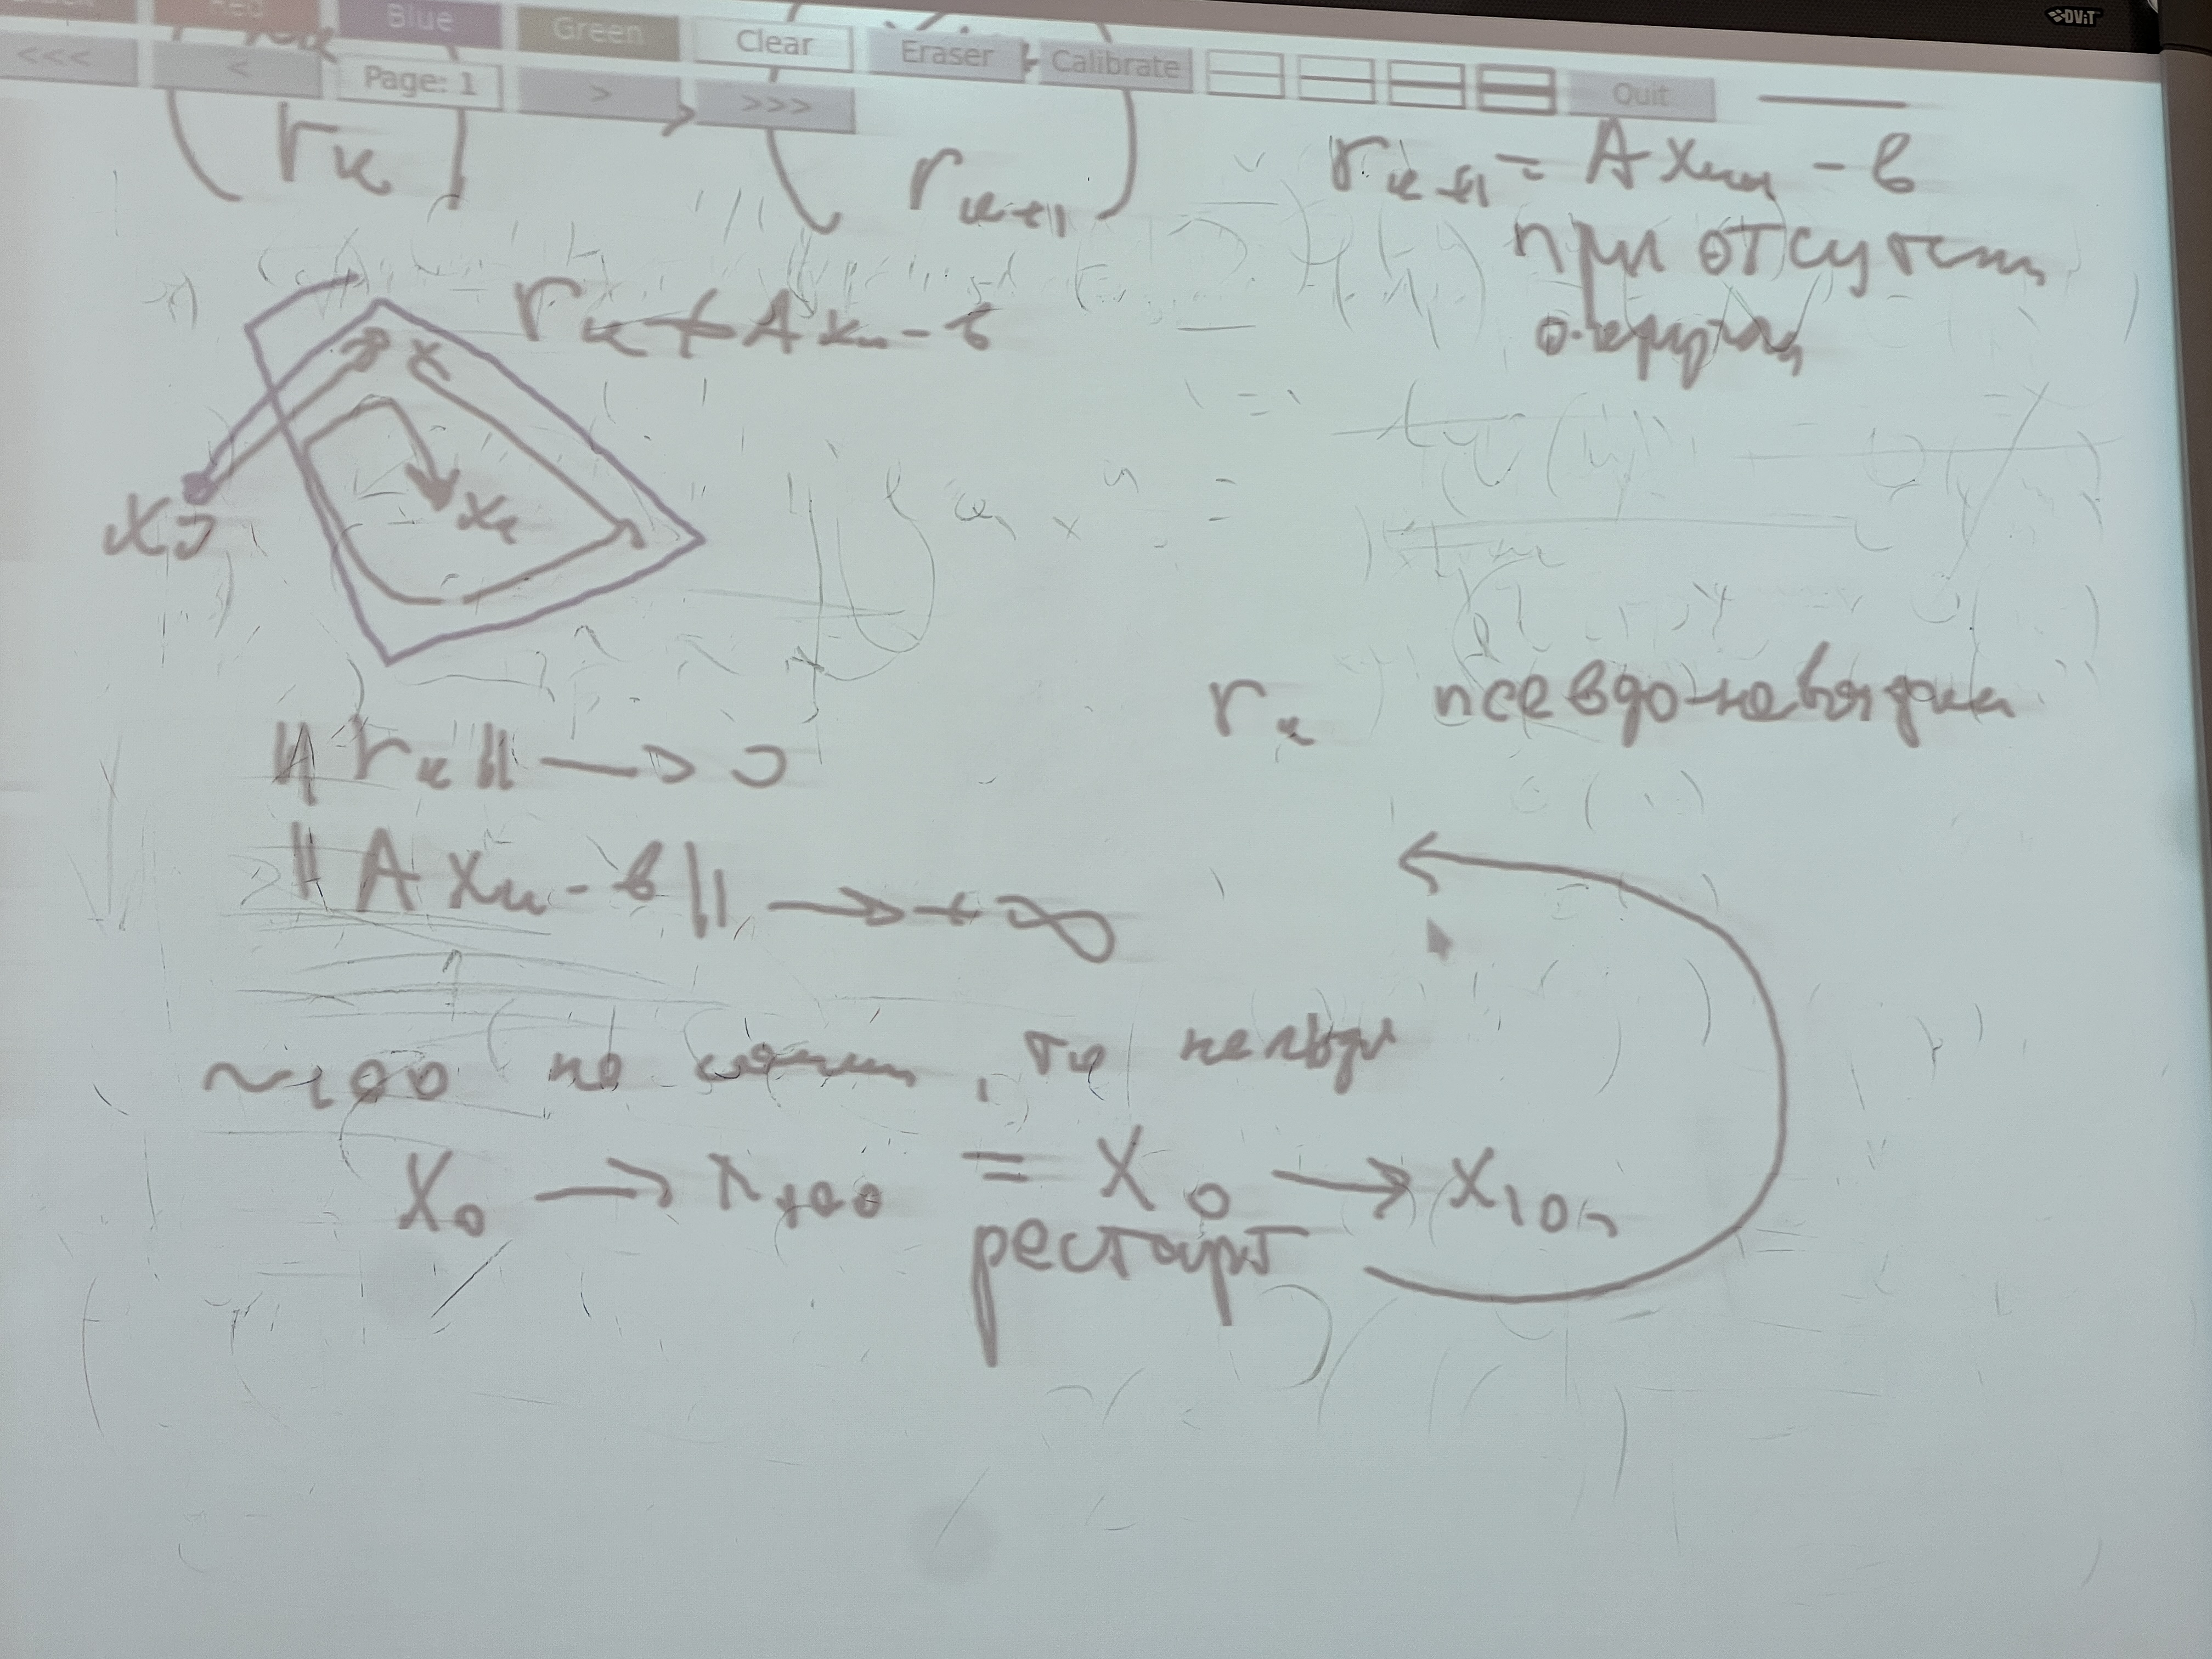 Red Blue Green Clear Eraser Calibrate Quit
<<< < Page: 1 > >>>
DViT
r_k → r_{k+1}
r_{k+1} = A x_{k+1} - b
при отсутствии
r_k ≠ A x_k - b
x
x_0
x_k
r_k псевдо-невязка
||r_k|| → 0
||A x_k - b|| → +∞
~100 по, то нельзя
x_0 → x_100 = x_0 → x_100
рестарт